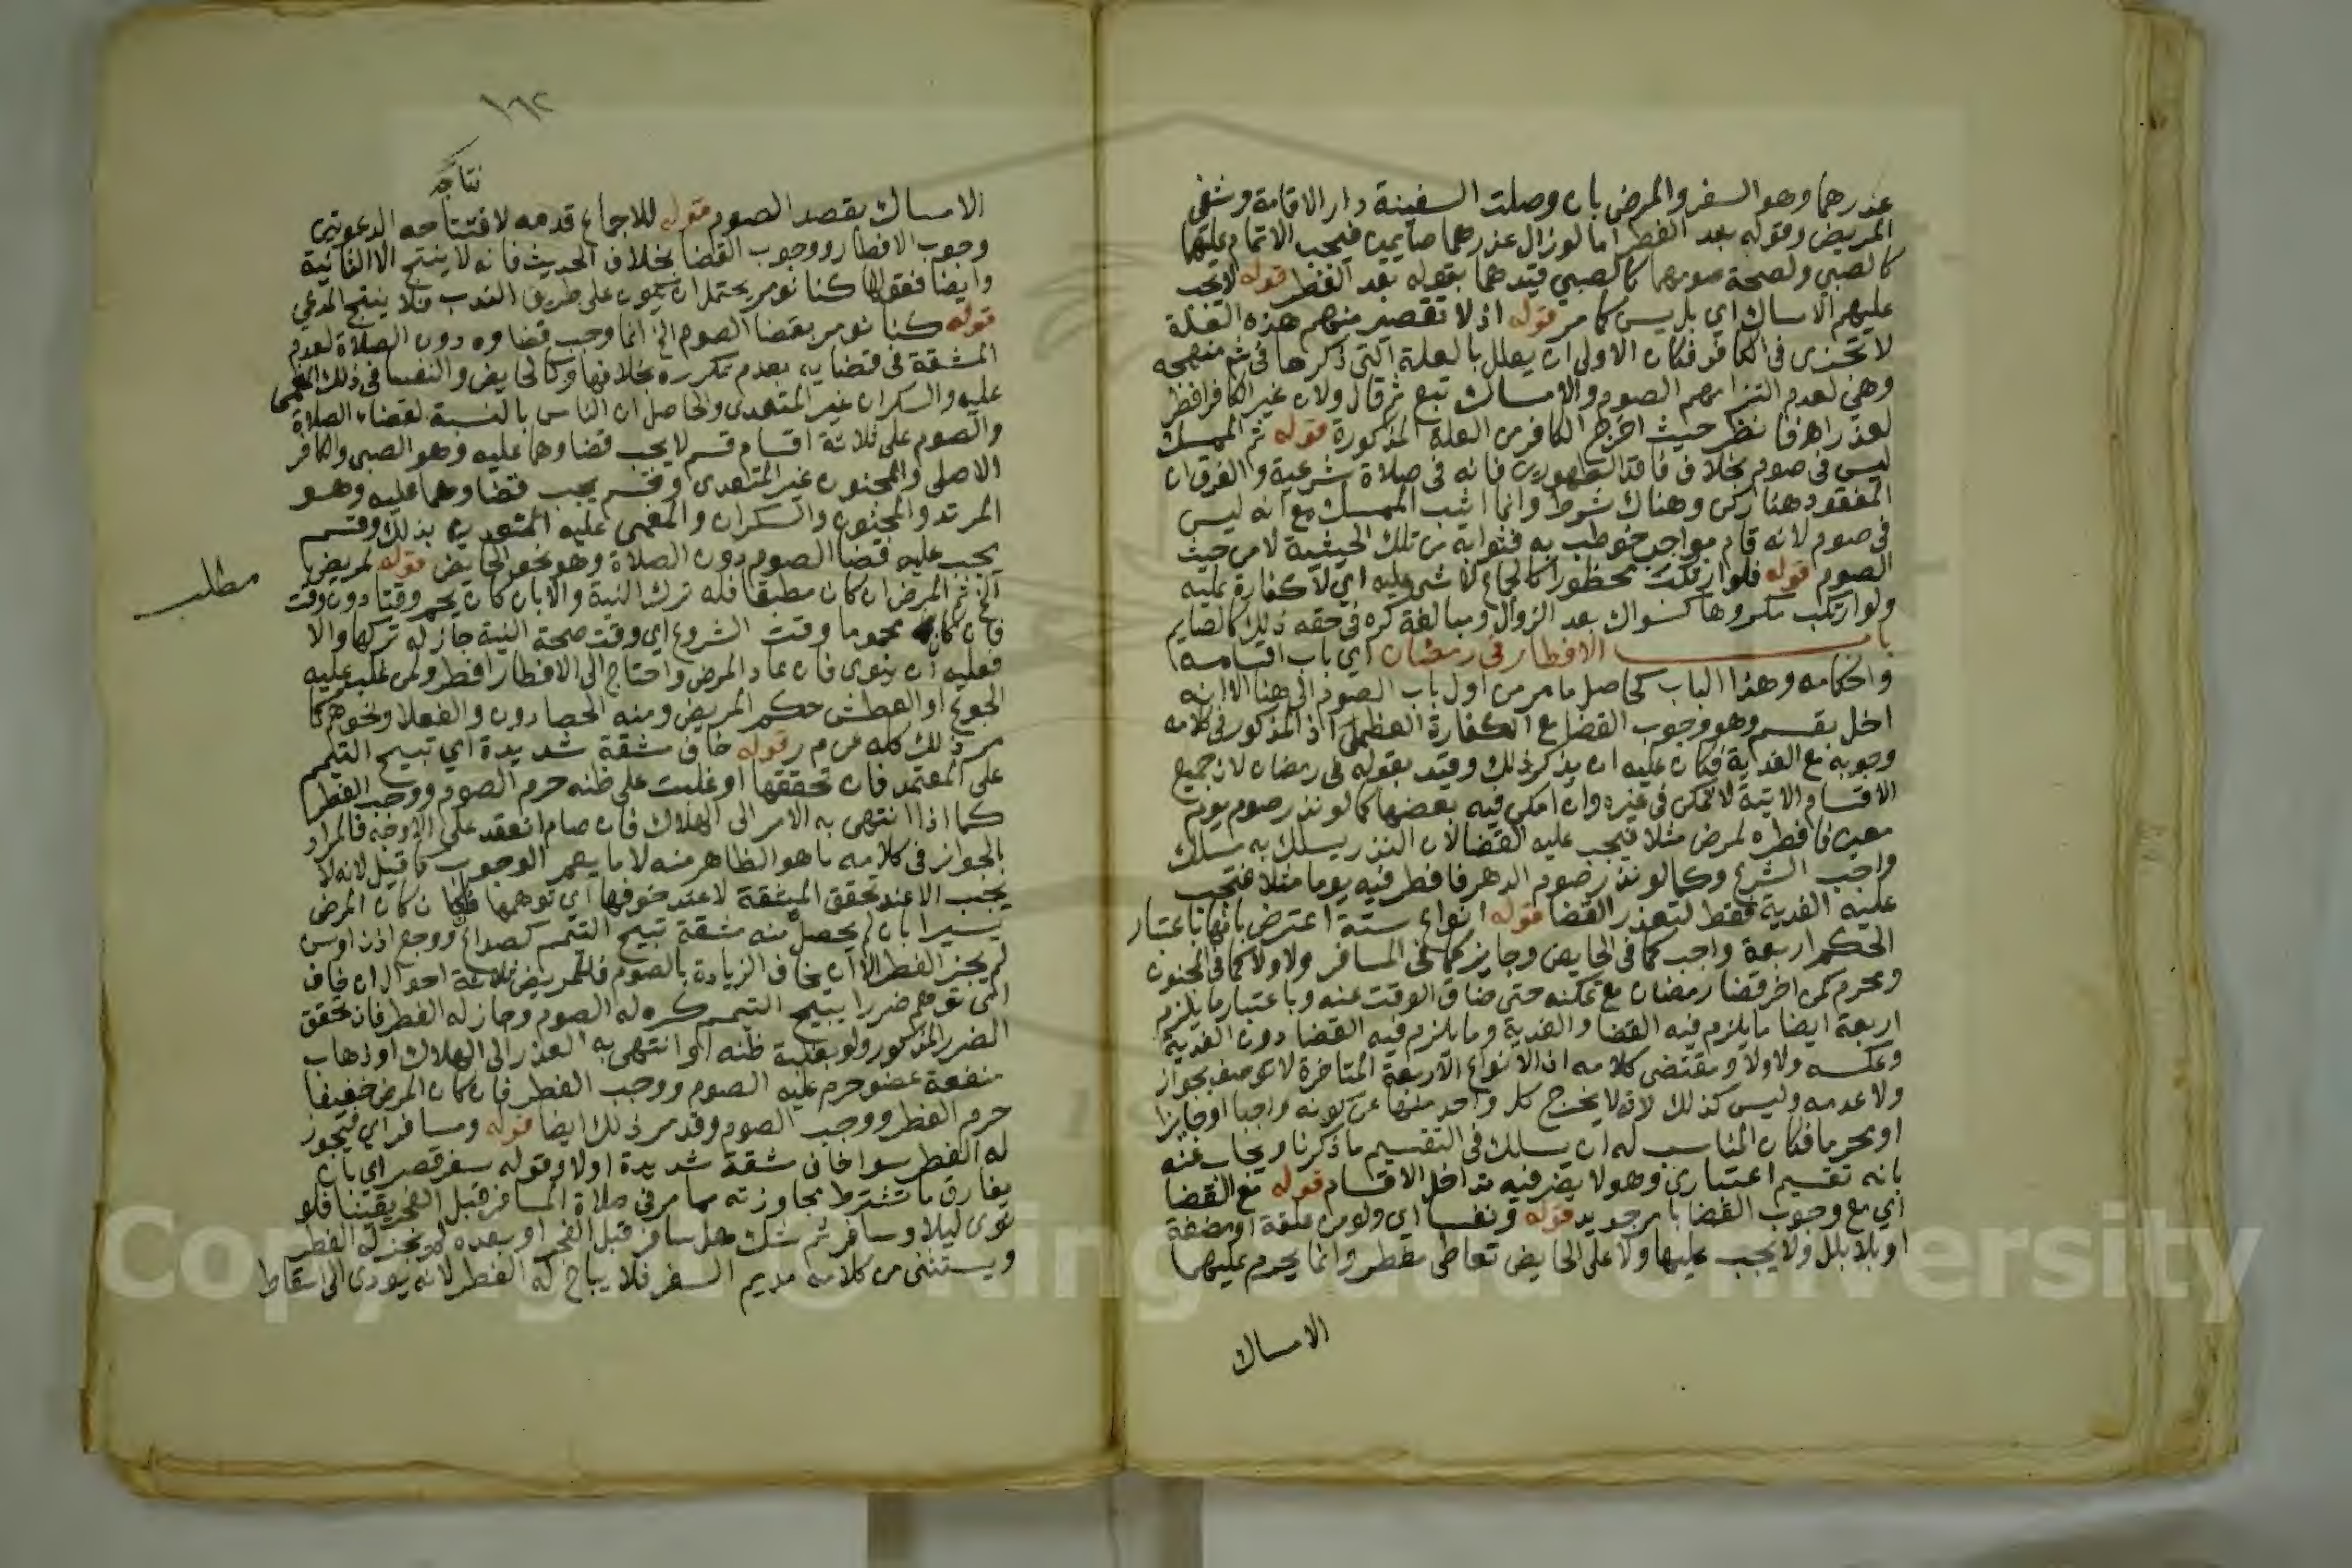 عذرهما وهو السفر والمرض بان وصلت السفينة دار الاقامة وشفي
المريض وقوله بعد الفطر اما لو زال عذرهما صايمين فيجب الاتمام عليهما
كالصبي ولصحة صومهما كالصبي قيدهما بقوله بعد الفطر قوله لا يجب
عليهم الامساك اي بل يسن كما مر قوله اذ لا تقصير منهم هذه العلة
لا تجزى في الكافر فكان الاولى ان يعلل بالعلة التي ذكرها في شم منهجه
وهي لعدم التزامهم الصوم والامساك تبع ثم قال ولان غير الكافر افطر
لعذر اهـ فانظر حيث اخرج الكافر من العلة المذكورة قوله ثم الممسك
ليس في صوم بخلاف فاقد الطهورين فانه في صلاة شرعية والفرق ان
المفقود هنا ركن وهناك شرط وانما اثيب الممسك مع انه ليس
في صوم لانه قام بواجب خوطب به فثوابه من تلك الحيثية لا من حيث
الصوم قوله فلو ارتكب محظورا كالجماع لا شي عليه اي لا كفارة عليه
ولو ارتكب مكروها كسواك بعد الزوال ومبالغة كره في حقه ذلك كالصايم
باب الافطار في رمضان اي باب اقسامه
واحكامه وهذا الباب كحاصل ما مر من اول باب الصوم الى هنا الا انه
اخل بقسم وهو وجوب القضا مع الكفارة العظمى اذ المذكور في كلامه
وجوبه مع الفدية فكان عليه ان يذكر ذلك وقيد بقوله في رمضان لان جميع
الاقسام الاتية لا تمكن في غيره وان امكن فيه بعضها كما لو نذر صوم يوم
معين فافطره لمرض مثلا فيجب عليه القضا لان النذر يسلك به مسلك
واجب الشرع وكما لو نذر صوم الدهر فافطر فيه يوما مثلا فتجب
عليه الفدية فقط لتعذر القضا قوله انواع ستة اعترض بانها باعتبار
الحكم اربعة واجب كما في الحايض وجايز كما في المسافر ولا ولا كما في المجنون
ومحرم كمن اخر قضا رمضان مع تمكنه حتى ضاق الوقت عنه وباعتبار ما يلزم
اربعة ايضا ما يلزم فيه القضا والفدية وما يلزم فيه القضا دون الفدية
وعكسه ولا ولا ومقتضى كلامه ان الانواع الاربعة المتاخرة لا توصف بجواز
ولا عدمه وليس كذلك لانه لا يخرج كل واحد منها عن كونه واجبا او جايزا
او محرما فكان المناسب له ان يسلك في التقسيم ما ذكرنا ويجاب عنه
بانه تقسيم اعتباري وهو لا يضر فيه تداخل الاقسام قوله مع القضا
اي مع وجوب القضا بامر جديد قوله ونفسا اي ولو من علقة او مضغة
او بلا بلل ولا يجب عليها ولا على الحايض تعاطي مفطر وانما يحرم عليهما
الامساك
١٦٢
نتاجه
الامساك بقصد الصوم قوله للاجماع قدمه لافتتاحه الدعوتين
وجوب الافطار ووجوب القضا بخلاف الحديث فانه لا ينتج الا الثانية
وايضا فقولها كنا نومر يحتمل ان يكون على طريق الندب فلا ينتج المدعي
قوله كنا نومر بقضا الصوم الخ انما وجب قضاوه دون الصلاة لعدم
المشقة في قضايه بعدم تكرره بخلافها وكالحايض والنفسا في ذلك المغمى
عليه والسكران غير المتعدي والحاصل ان الناس بالنسبة لقضاء الصلاة
والصوم على ثلاثة اقسام قسم لا يجب قضاوهما عليه وهو الصبي والكافر
الاصلي والمجنون غير المتعدي وقسم يجب قضاوهما عليه وهو
المرتد والمجنون والسكران والمغمى عليه المتعدين بذلك وقسم
يجب عليه قضا الصوم دون الصلاة وهو نحو الحايض قوله لمريض
مطلب
الخ ثم المرض ان كان مطبقا فله ترك النية والا بان كان يحم وقتا دون وقت
فان كان محموما وقت الشروع اي وقت صحة النية جاز له تركها والا
فعليه ان ينوي فان عاد المرض واحتاج الى الافطار افطر ولمن غلب عليه
الجوع او العطش حكم المريض ومنه الحصادون والفعلا ونحوهم كما
مر ذلك كله عن م ر قوله خاف مشقة شديدة اي تبيح التيمم
على المعتمد فان تحققها او غلبت على ظنه حرم الصوم ووجب الفطر
كما اذا انتهى به الامر الى الهلاك فان صام انعقد على الاوجه فالمراد
بالجواز في كلامه ما هو الظاهر منه لا ما يعم الوجوب كما قيل لانه لا
يجب الا عند تحقق المشقة لا عند خوفها اي توهمها فان كان المرض
يسيرا بان لم يحصل منه مشقة تبيح التيمم كصداع ووجع اذن او سن
لم يجز الفطر الا ان يخاف الزيادة بالصوم فللمريض ثلاثة احوال ان خاف
اي توهم ضررا يبيح التيمم كره له الصوم وجاز له الفطر فان تحقق
الضرر المذكور ولو بغلبة ظنه او انتهى به العذر الى الهلاك او ذهاب
منفعة عضو حرم عليه الصوم ووجب الفطر فان كان المرض خفيفا
حرم الفطر ووجب الصوم وقد مر ذلك ايضا قوله ومسافر اي فيجوز
له الفطر سوا خاف مشقة شديدة او لا وقوله سفر قصر اي بان
يفارق ما تشترط مجاوزته مما مر في صلاة المسافر قبل الفجر يقينا فلو
نوى ليلا وسافر ثم شك هل سافر قبل الفجر او بعده لم يجز له الفطر
ويستثنى من كلامه مديم السفر فلا يباح له الفطر لانه يودي الى اسقاط
Copyright © King Saud University